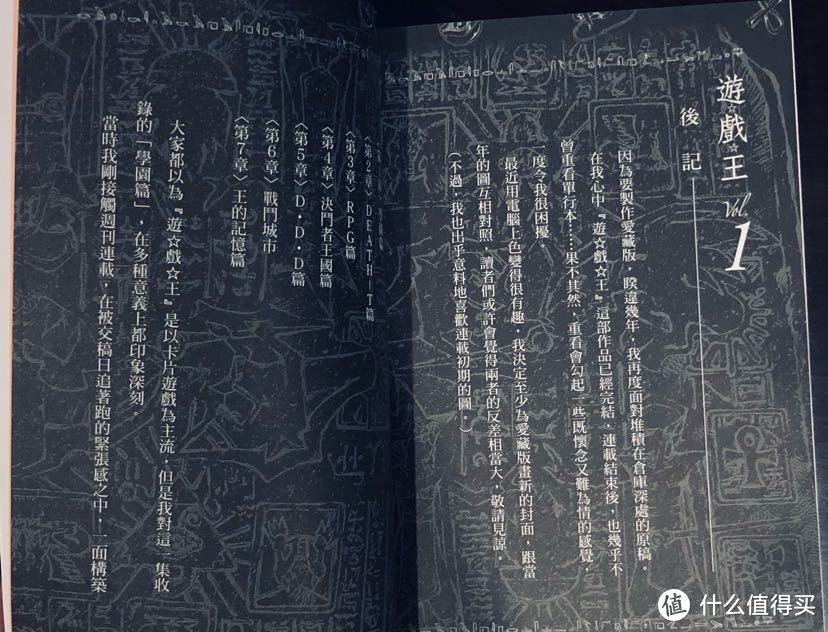 遊☆戲☆王 Vol. 1
後記
因為要製作愛藏版，睽違幾年，我再度面對堆積在倉庫深處的原稿。
在我心中『遊☆戲☆王』這部作品已經完結，連載結束後，也幾乎不
曾重看單行本……果不其然，重看會勾起一些既懷念又難為情的感覺，
一度令我很困擾。
最近用電腦上色變得很有趣，我決定至少為愛藏版畫新的封面，跟當
年的圖互相對照，讀者們或許會覺得兩者的反差相當大，敬請見諒。
（不過，我也出乎意料地喜歡連載初期的圖。）
〈第2章〉DEATH-T篇
〈第3章〉RPG篇
〈第4章〉決鬥者王國篇
〈第5章〉D・D・D篇
〈第6章〉戰鬥城市
〈第7章〉王的記憶篇
大家都以為『遊☆戲☆王』是以卡片遊戲為主流，但是我對這一集收
錄的「學園篇」，在多種意義上都印象深刻。
當時我剛接觸週刊連載，在被交稿日追著跑的緊張感之中，一面構築
值 什么值得买